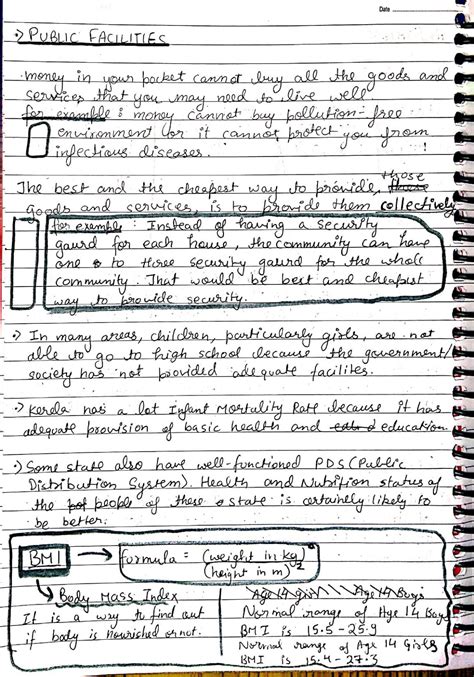 Date
-> PUBLIC FACILITIES
money in your pocket cannot buy all the goods and
services that you may need to live well
for example : money cannot buy pollution-free
environment or it cannot protect you from
infectious diseases.
The best and the cheapest way to provide, those
goods and services, is to provide them collectively
for example : Instead of having a security
gaurd for each house, the community can have
one to three security gaurd for the whole
community. That would be best and cheapest
way to provide security.
-> In many areas, children, particularly girls, are not
able to go to high school because the government/
society has not provided adequate facilites.
-> Kerala has a lot Infant Mortality Rate because it has
adequate provision of basic health and education.
-> Some state also have well-functioned PDS (Public
Distribution System). Health and Nutrition status of
the people of these state is certainly likely to
be better.
BMI -> formula = (weight in kg)
(height in m)²
Body Mass Index
It is a way to find out
if body is nourished or not.
Age 14 girls Age 14 Boys
Normal range of Age 14 Boys
BMI is 15.5 - 25.9
Normal range of Age 14 Girls
BMI is 15.4 - 27.3